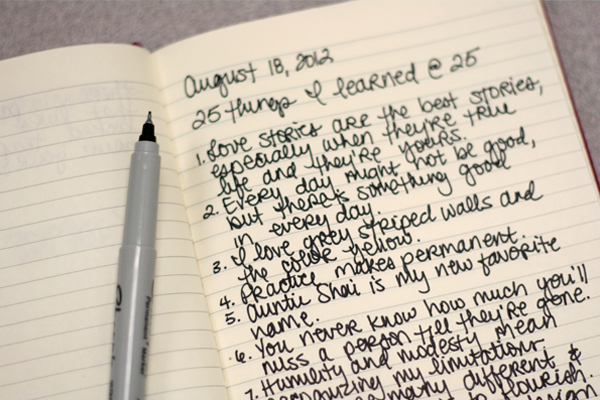 August 18, 2012
25 things I learned @ 25
1. Love stories are the best stories,
especially when they're true
life and they're yours.
2. Every day might not be good,
but there's something good
in every day.
3. I love grey striped walls and
the color yellow.
4. Practice makes permanent.
5. Auntie Shai is my new favorite
name.
6. You never know how much you'll
miss a person till they're gone.
7. Humility and modesty mean
recognizing my limitations.
many different &
to flourish.